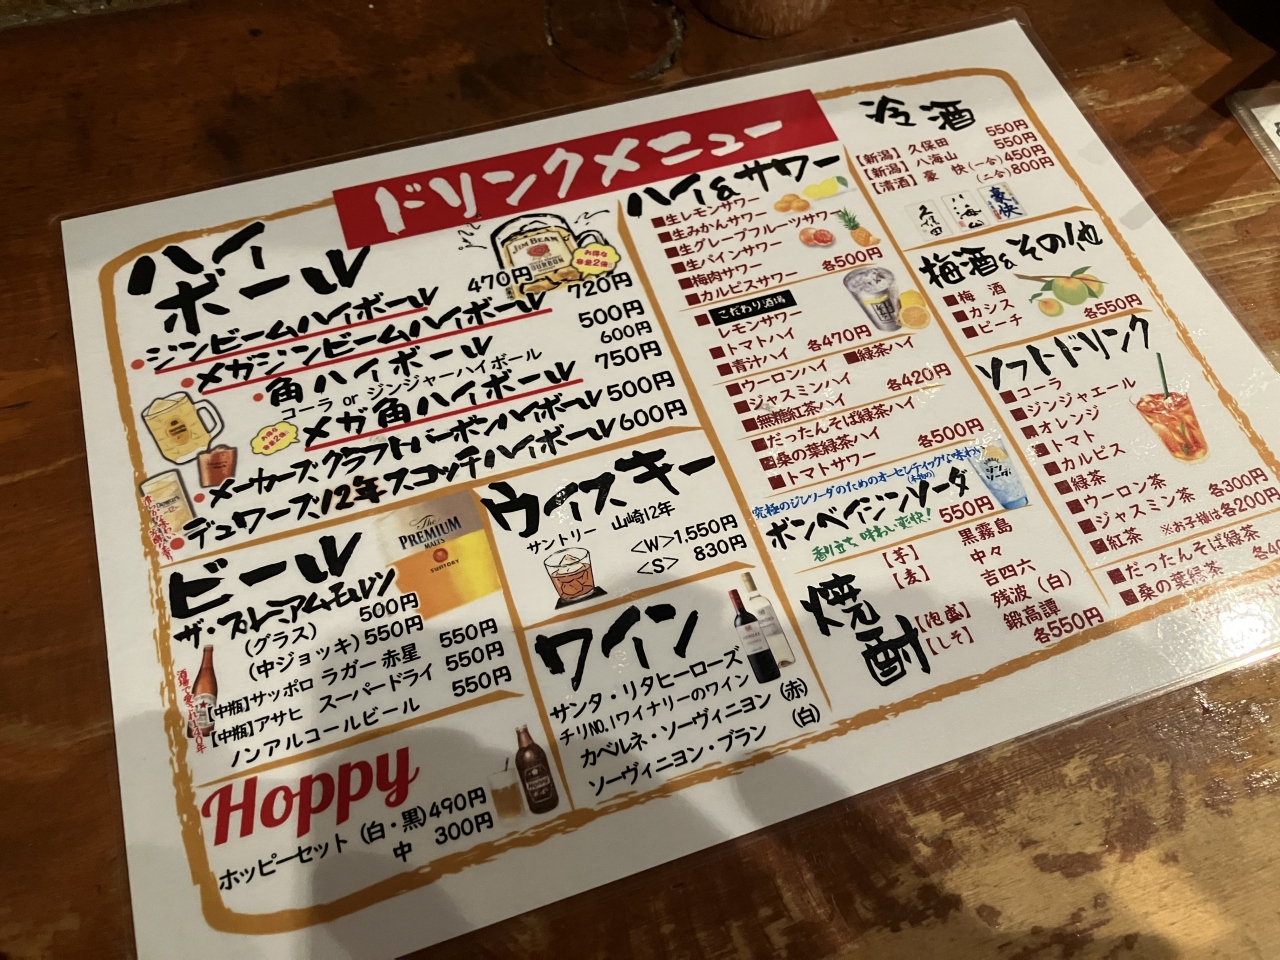 ドリンクメニュー
ハイボール
ジンビームハイボール 470円
メガジンビームハイボール 720円
角ハイボール 500円
コーラ or ジンジャーハイボール 600円
メガ角ハイボール 750円
メーカーズクラフトバーボンハイボール 500円
デュワーズ12年スコッチハイボール 600円
JIM BEAM
BOURBON
お得な
容量2倍!
お得な
容量2倍!
ビール
ザ・プレミアムモルツ
(グラス) 500円
(中ジョッキ) 550円
【中瓶】サッポロ ラガー 赤星 550円
【中瓶】アサヒ スーパードライ 550円
ノンアルコールビール 550円
The
PREMIUM
MALT'S
SUNTORY
Hoppy
ホッピーセット (白・黒) 490円
中 300円
ウイスキー
サントリー 山崎12年
<W> 1,550円
<S> 830円
ワイン
サンタ・リタヒーローズ
チリNO.1ワイナリーのワイン
カベルネ・ソーヴィニヨン (赤)
ソーヴィニヨン・ブラン (白)
ハイ&サワー
■生レモンサワー
■生みかんサワー
■生グレープフルーツサワー
■生パインサワー
■梅肉サワー
■カルピスサワー 各500円
■こだわり酒場
レモンサワー
■トマトハイ
■青汁ハイ 各470円
■ウーロンハイ ■緑茶ハイ
■ジャスミンハイ
■無糖紅茶ハイ 各420円
■だったんそば緑茶ハイ
■桑の葉緑茶ハイ
■トマトサワー 各500円
究極のジンソーダのためのオーセンティックな味わい
ボンベイジンソーダ
香り立ち、味わい爽快! 550円
焼酎
【芋】 黒霧島
【麦】 中々
吉四六
【泡盛】 残波 (白)
【しそ】 鍛高譚
各550円
冷酒
【新潟】 久保田 550円
【新潟】 八海山 550円
【清酒】 豪快 (一合) 450円
(二合) 800円
久保田
八海山
豪快
梅酒&その他
■梅酒
■カシス
■ピーチ 各550円
ソフトドリンク
■コーラ
■ジンジャエール
■オレンジ
■トマト
■カルピス
■緑茶
■ウーロン茶
■ジャスミン茶 各300円
■紅茶 ※お子様は各200円
■だったんそば緑茶
■桑の葉緑茶